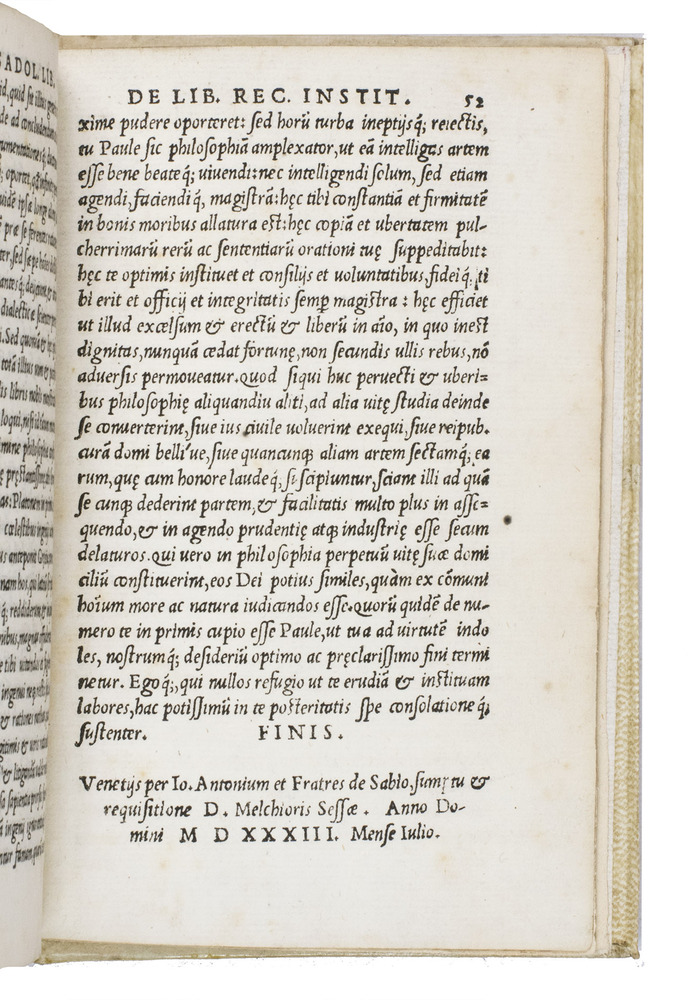 DE LIB. REC. INSTIT. 52
xime pudere oporteret: sed horũ turba ineptijsq́; reiectis,
tu Paule sic philosophiã amplexator, ut eã intelligas artem
esse bene beateq́; uiuendi: nec intelligendi solum, sed etiam
agendi, faciendiq́, magistrã: hęc tibi constantiã et firmitatẽ
in bonis moribus allatura est: hęc copiã et ubertatem pul-
cherrimarũ rerũ ac sententiarũ orationi tuę suppeditabit:
hęc te optimis instituet et consilijs et uoluntatibus, fideiq́, ti
bi erit et officij et integritatis semp̱ magistra: hęc efficiet
ut illud excelsum & erectũ & liberũ in aĩo, in quo inest
dignitas, nunquã cedat fortunę, non secundis ullis rebus, nõ
aduersis permoueatur. quod siqui huc peruecti & uberi=
bus philosophię aliquandiu aliti, ad alia uitę studia deinde
se conuerterint, siue ius ciuile uoluerint exequi, siue reipub.
curã domi belli've, siue quancunq; aliam artem sectamq́; ea
rum, quę cum honore laudeq́, suscipiuntur, sciant illi ad quã
se cunq; dederint partem, & facilitatis multo plus in asse=
quendo, & in agendo prudentię atq; industrię esse secum
delaturos. Qui uero in philosophia perpetuũ uitę suæ domi
ciliũ constituerint, eos Dei potius similes, quàm ex cõmuni
hoĩum more ac natura iudicandos esse. quorũ quidẽ de nu-
mero te in primis cupio esse Paule, ut tua ad uirtutẽ indo
les, nostrumq́; desideriũ optimo ac pręclarissimo fini termi
netur. Egoq́;, qui nullos refugio ut te erudiã & instituam
labores, hac potissimũ in te posteritatis spe consolationeq́;
sustenter. FINIS.
Venetijs per Io. Antonium et Fratres de Sabio, sumptu &
requisitione D. Melchioris Sessæ. Anno Do-
mini M D XXXIII. Mense Iulio.